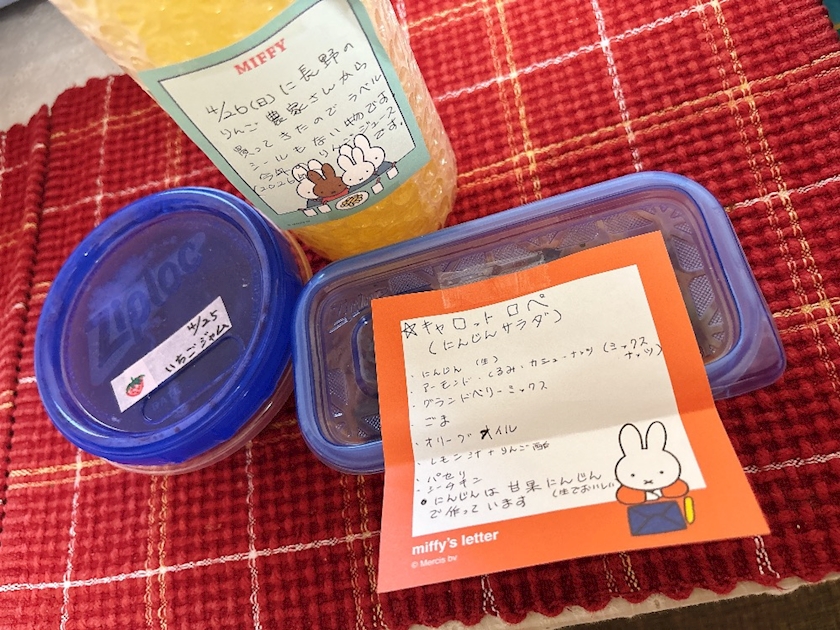 MIFFY
4/26(日)に長野の
りんご農家さんから
買ってきたのでラベル
シールもない物です
今年 りんごジュース
(2026 です。
Ziploc
4/25
いちごジャム
☆キャロットロペ
(にんじんサラダ)
・にんじん (生)
・アーモンド・くるみ・カシューナッツ (ミックス
ナッツ)
・グランドベリーミックス
・ごま
・オリーブオイル
・レモン汁+りんご酢
・パセリ
・シーチキン
• にんじんは 甘果にんじん
で作っています (生でおいしい
miffy's letter
© Mercis bv